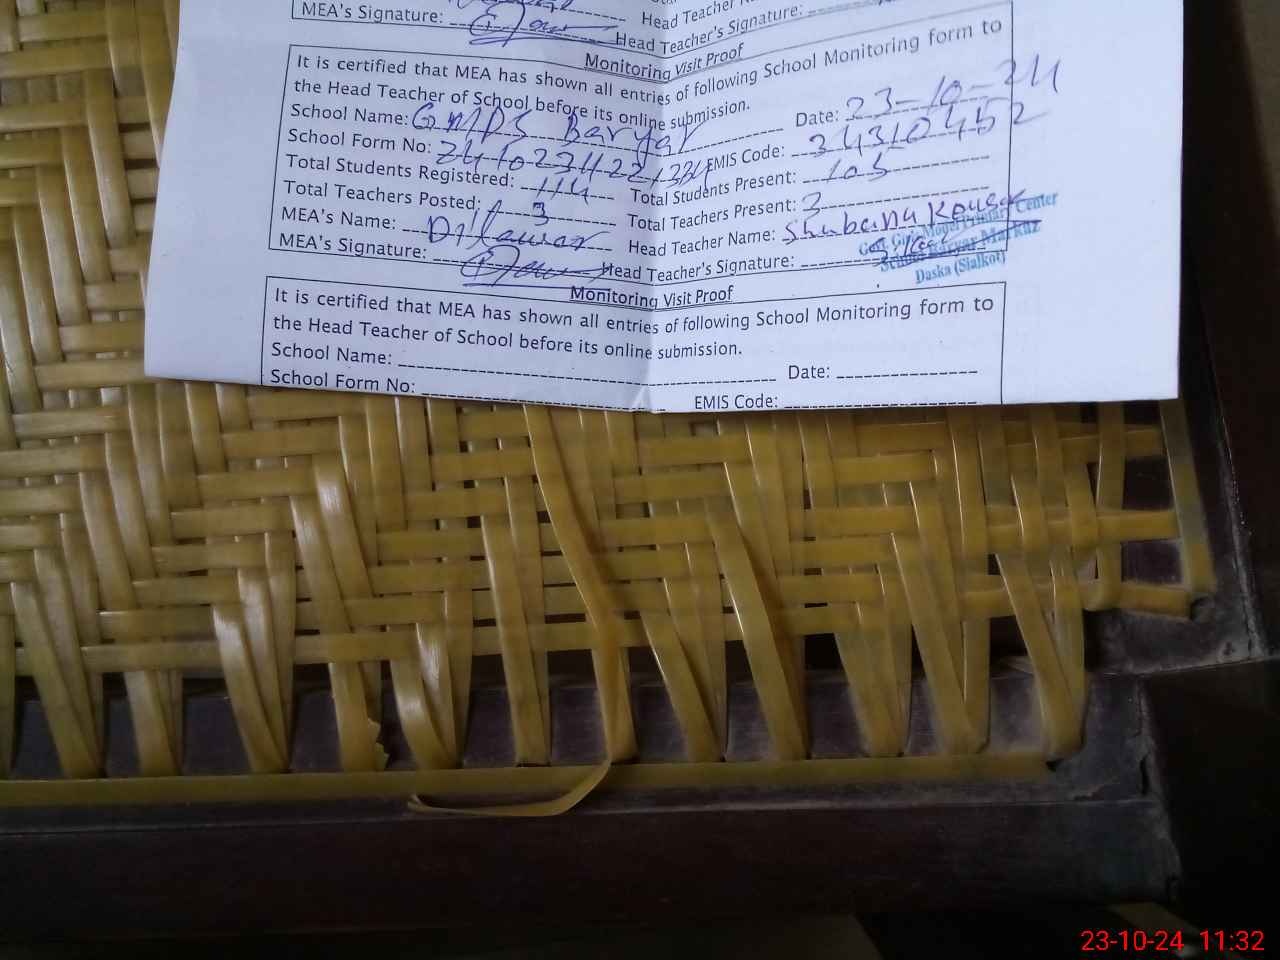 MEA's Signature: Head Teacher's Signature:
Monitoring Visit Proof
It is certified that MEA has shown all entries of following School Monitoring form to
the Head Teacher of School before its online submission.
School Name: GMPS Baryar Date: 23-10-24
School Form No: EMIS Code: 34310452
Total Students Registered: 114 Total Students Present: 105
Total Teachers Posted: 3 Total Teachers Present: 3
MEA's Name: Dilawar Head Teacher Name: Shubana Kousar
MEA's Signature: Head Teacher's Signature:
Primary Center
School Baryar Markaz
Daska (Sialkot)
Monitoring Visit Proof
It is certified that MEA has shown all entries of following School Monitoring form to
the Head Teacher of School before its online submission.
School Name: Date:
School Form No: EMIS Code:
23-10-24 11:32